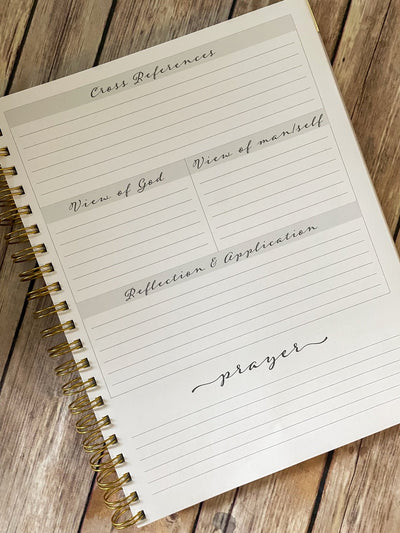 Cross References
View of God
View of man/self
Reflection & Application
prayer